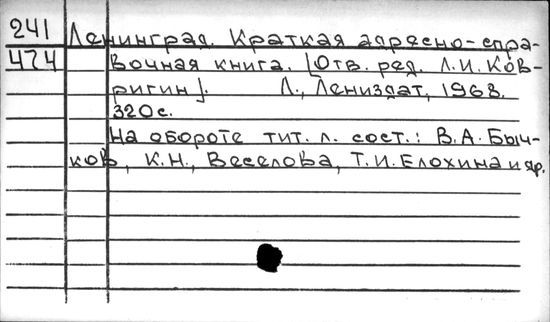 241 Ленинград. Краткая адресно-спра-
474 вочная книга. [Отв. ред. Л.И. Ков-
ригин]. Л., Лениздат, 1968.
320с.
На обороте тит. л. сост.: В.А. Быч-
ков, К.Н., Веселова, Т.И. Елохина и др.